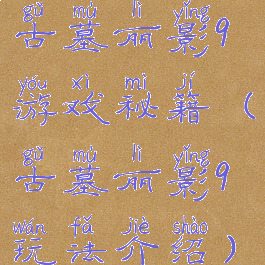 gǔ mù lì yǐng
古墓丽影9
yóu xì mì jí
游戏秘籍（
gǔ mù lì yǐng
古墓丽影9
wán fǎ jiè shào
玩法介绍）